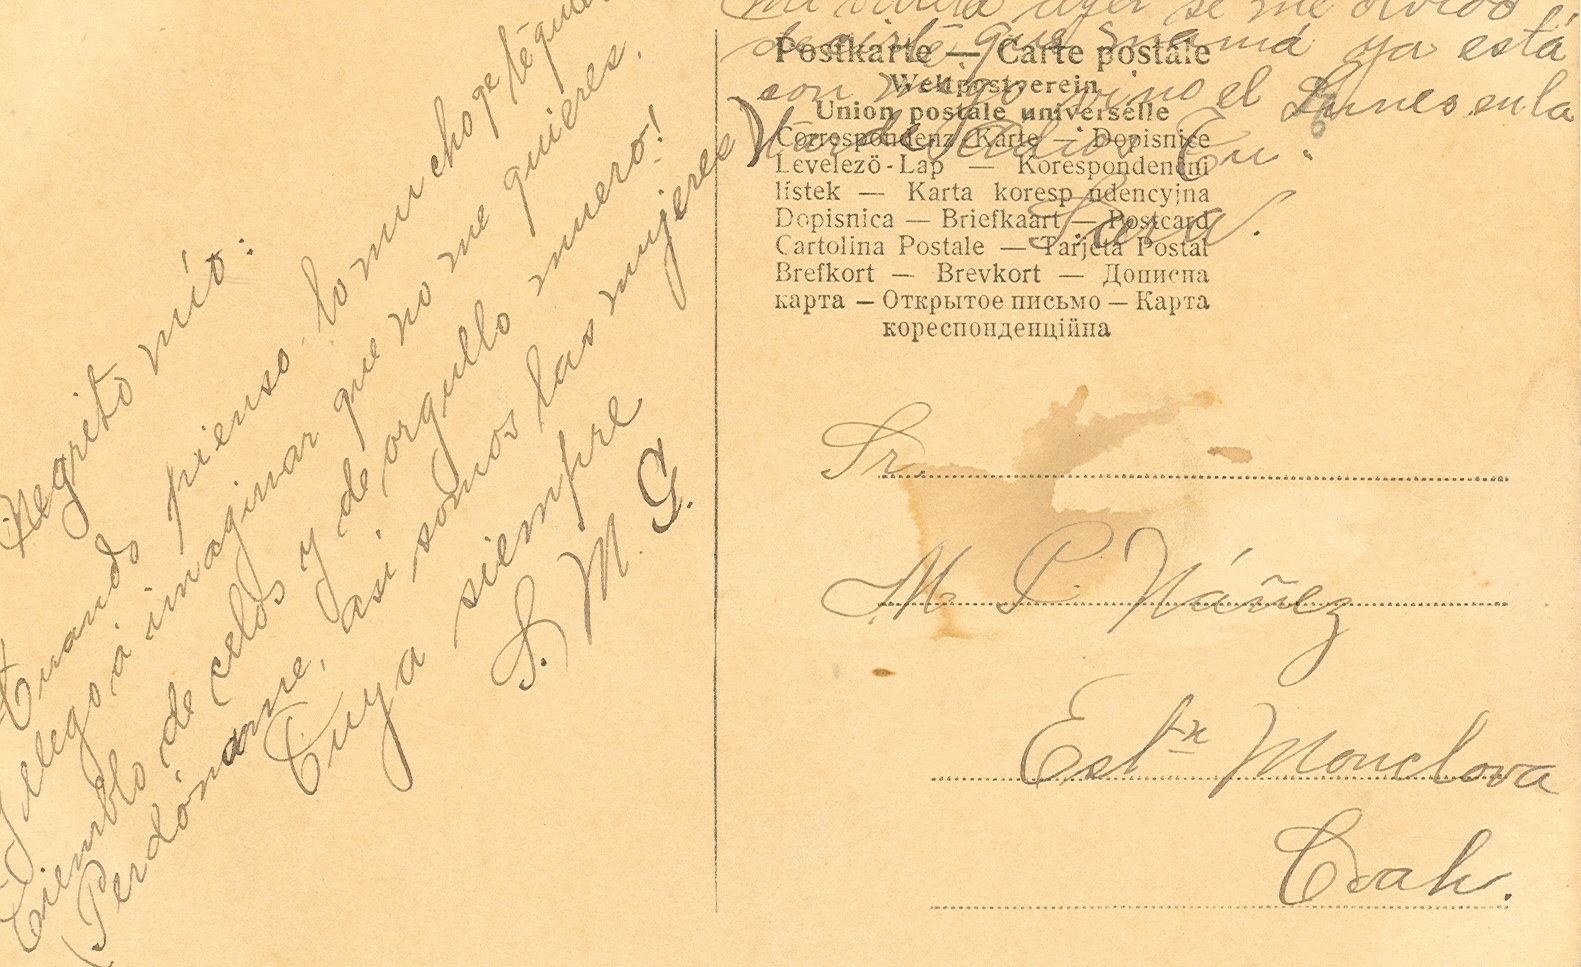 Negrito mío:
Cuando pienso lo mucho qe te quie
y llego á imaginar que no me quieres.
Tiemblo de celos y de orgullo muero!
(Perdóname, así somos las mujeres)
Tuya siempre
S. M. G.
mi visita ayer se me olvidó
decirte que mamá ya está
con migo vino el Lunes en la
tarde Adios Tu
Sara.
Postkarte — Carte postale
Weltpostverein
Union postale universelle
Correspondenz-Karte — Dopisnice
Levelezö-Lap — Korespondenčni
lístek — Karta koresp ndencyjna
Dopisnica — Briefkaart — Postcard
Cartolina Postale — Tarjeta Postal
Brefkort — Brevkort — Дописна
карта — Открытое письмо — Карта
кореспонденційна
Sr.
M. P. Náñez
Estn Monclova
Coah.